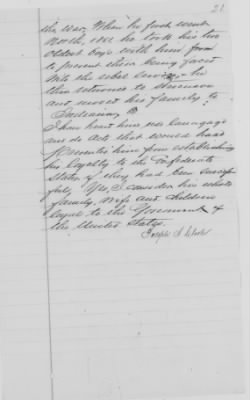 21
the war, When he first went
North, 1862 he took his two
oldest boys with him from
to prevent them being forced
into the rebel service. he
then returned to Stevenson
and moved his family to
Indiana
I have heard him use language
and do acts that would have
prevented him from establishing
his loyalty to the Confederate
states if they had been success
full, Yes, I consider him whole
family, wife and children
loyal to the Government of
the United States.
Joseph